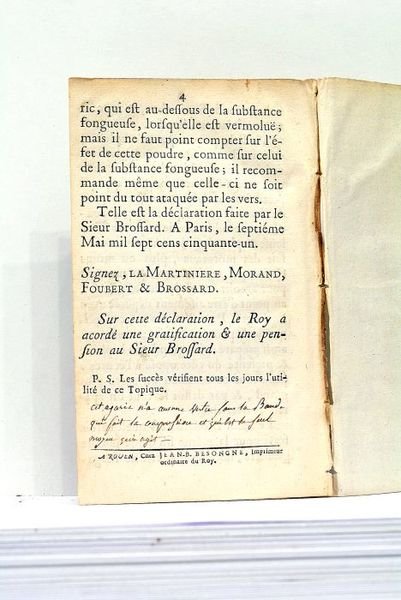 4
ric, qui eſt au-deſſous de la ſubſtance
fongueuſe, lorſqu'elle eſt vermoluë;
mais il ne faut point compter ſur l'é-
fet de cette poudre, comme ſur celui
de la ſubſtance fongueuſe; il recom-
mande même que celle-ci ne ſoit
point du tout attaquée par les vers.
Telle eſt la déclaration faite par le
Sieur Broſſard. A Paris, le ſeptiéme
Mai mil ſept cens cinquante-un.
Signez, LA MARTINIERE, MORAND,
FOUBERT & BROSSARD.
Sur cette déclaration, le Roy a
acordé une gratification & une pen-
ſion au Sieur Broſſard.
P. S. Les ſuccès vérifient tous les jours l'uti-
lité de ce Topique.
cet agaric n'a aucune vertu sans la Band.
qui fait la compression et qui est le seul
moyen qui agit —
A ROUEN, Chez JEAN-B. BESONGNE, Imprimeur
ordinaire du Roy.